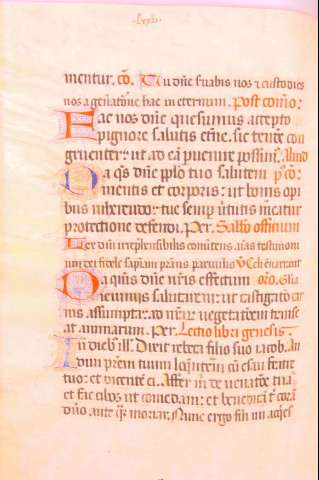 ·lxxv·
mentur. cō. Tu dn̄e suabis nos ⁊ custodies
nos a gn̄atōne hac in eternum. Post comō:
Fac nos dn̄e quesumus accepto
pignore salutis etn̄e. sic tende con
gruenter: ut ad eā puenire possim᷒. Aliud
Da q̄s dn̄e pplo tuo salutem
mentis et corporis: ut bonis opi
bus inherendo: tue semp ututis meātur
protectione defendi. Per. Sabb officium
Lex dn̄i irrephensibilis testimoni
um dei fidele sapiam p̄stans paruulis ℣ Celi enarrant
Da qm̄s dn̄e nr̄is effectum oro.
ieiuniis salutarem: ut castigatio car
nis assumpta: ad nr̄ar᷒ uegetatōem transe
at animarum. Per. Lectio libri genesis:
In dieb᷒ ill. Dixit rebeca filio suo iacob. Au
diui pr̄em tuum loquētem cū esau fratre
tuo: et dicente ei. Affer m̄ de uenatōe tua
et fac cibos ut comedam: et benedicā t̄ corā
dn̄o ante q̄ moriar. Nunc ergo fili mi acq̄es